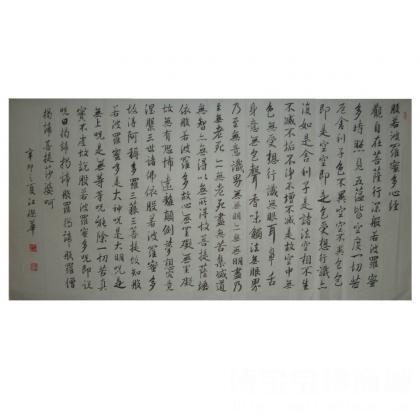 般若波羅蜜多心經
觀自在菩薩行深般若波羅蜜
多時照見五蘊皆空度一切苦
厄舍利子色不異空空不異色色
即是空空即是色受想行識亦
復如是舍利子是諸法空相不生
不滅不垢不淨不增不減是故空中無
色無受想行識無眼耳鼻舌
身意無色聲香味觸法無眼界
乃至無意識界無無明亦無無明盡乃
至無老死亦無老死盡無苦集滅道
無智亦無得以無所得故菩提薩埵
依般若波羅蜜多故心無罣礙無罣礙
故無有恐怖遠離顛倒夢想究竟
涅槃三世諸佛依般若波羅蜜多
故得阿耨多羅三藐三菩提故知般
若波羅蜜多是大神咒是大明咒是
無上咒是無等等咒能除一切苦真
實不虛故說般若波羅蜜多咒即說
咒曰揭諦揭諦般羅揭諦般羅僧
揭諦菩提莎婆呵
辛卯之夏江華